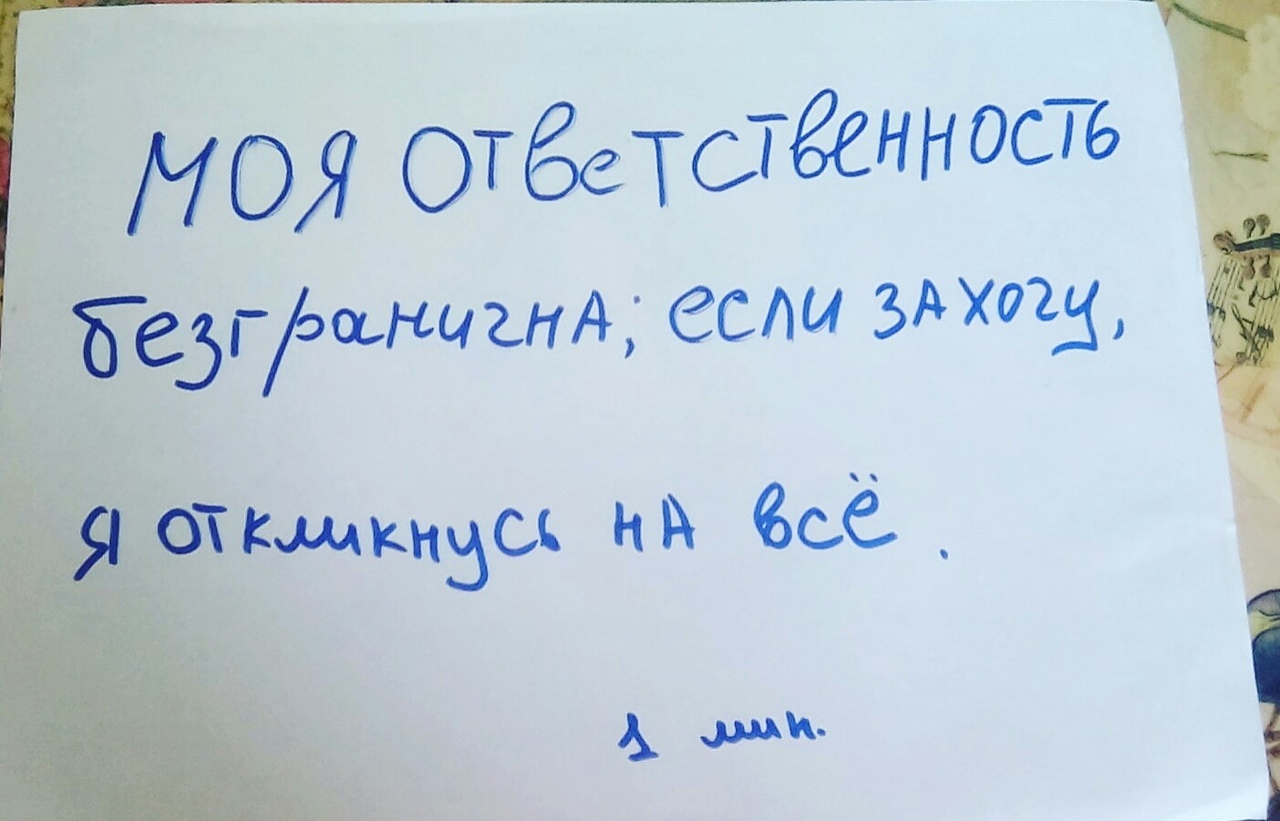 Моя ответственность
безгранична; если захочу,
я откликнусь на всё.
1 мин.